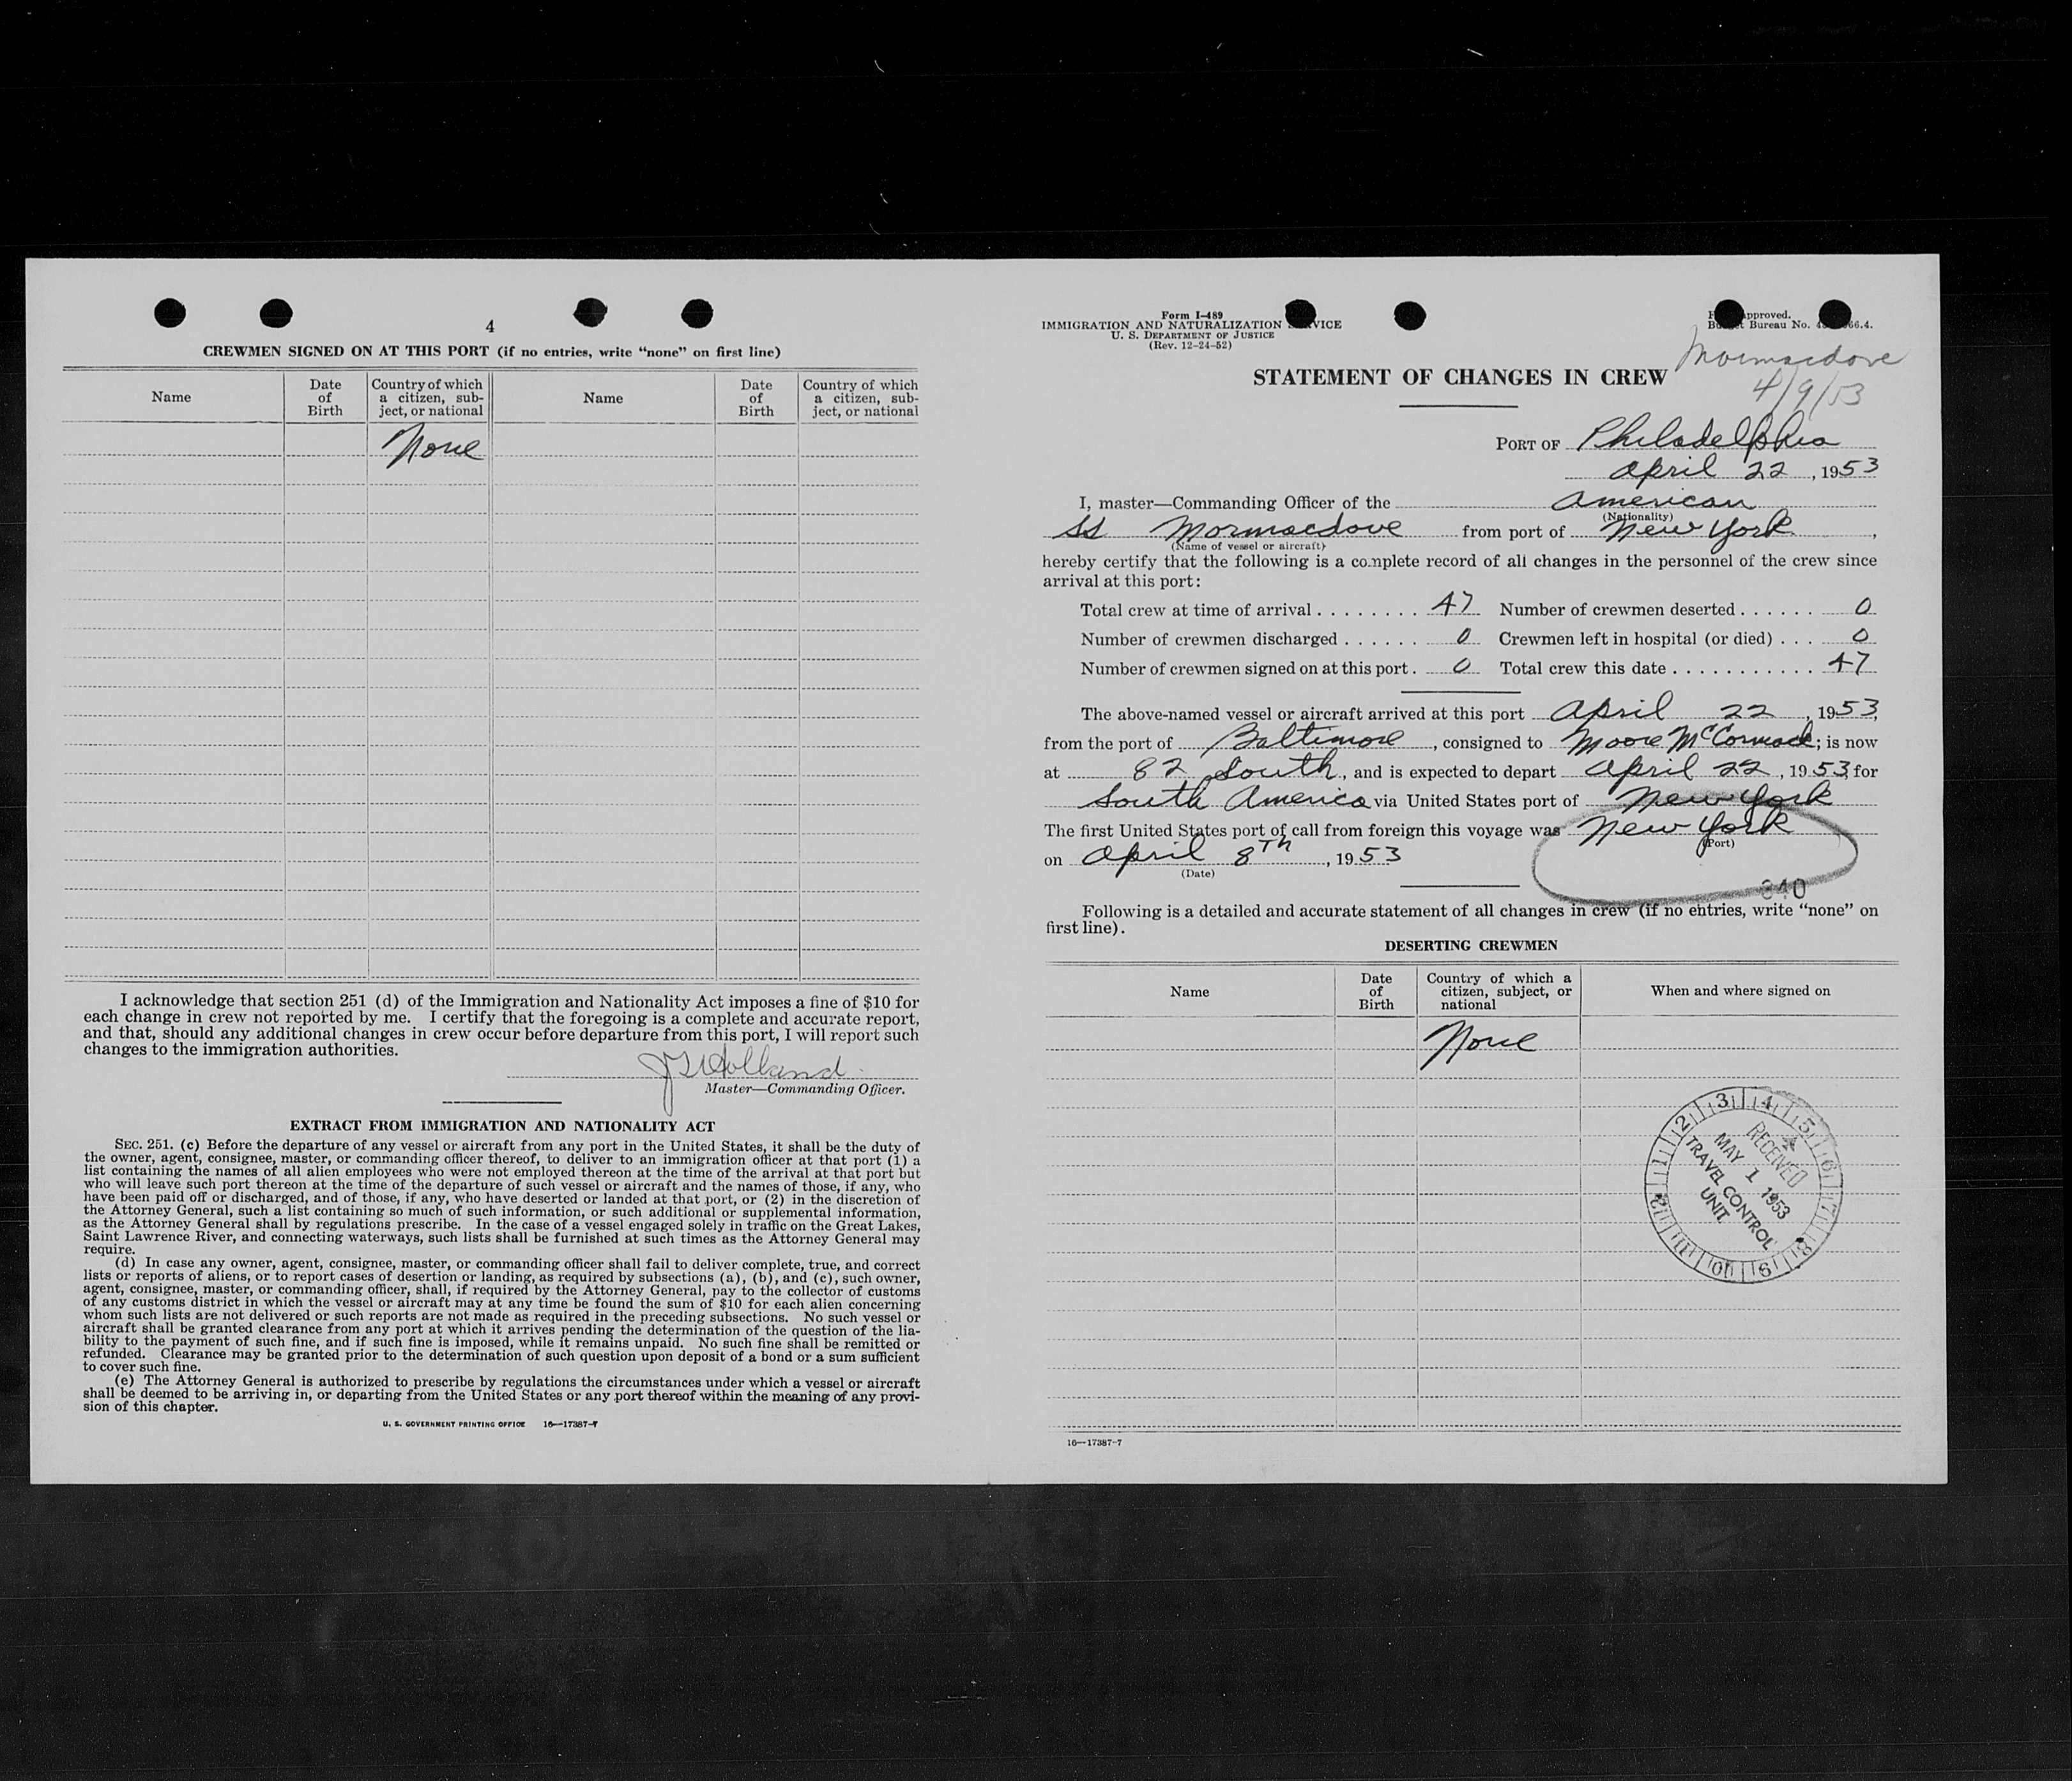 4
CREWMEN SIGNED ON AT THIS PORT (if no entries, write "none" on first line)
Name
Date of Birth
Country of which a citizen, subject, or national
Name
Date of Birth
Country of which a citizen, subject, or national
None
I acknowledge that section 251 (d) of the Immigration and Nationality Act imposes a fine of $10 for
each change in crew not reported by me. I certify that the foregoing is a complete and accurate report,
and that, should any additional changes in crew occur before departure from this port, I will report such
changes to the immigration authorities.
Holland
Master—Commanding Officer.
EXTRACT FROM IMMIGRATION AND NATIONALITY ACT
SEC. 251. (c) Before the departure of any vessel or aircraft from any port in the United States, it shall be the duty of
the owner, agent, consignee, master, or commanding officer thereof, to deliver to an immigration officer at that port (1) a
list containing the names of all alien employees who were not employed thereon at the time of the arrival at that port but
who will leave such port thereon at the time of the departure of such vessel or aircraft and the names of those, if any, who
have been paid off or discharged, and of those, if any, who have deserted or landed at that port, or (2) in the discretion of
the Attorney General, such a list containing so much of such information, or such additional or supplemental information,
as the Attorney General shall by regulations prescribe. In the case of a vessel engaged solely in traffic on the Great Lakes,
Saint Lawrence River, and connecting waterways, such lists shall be furnished at such times as the Attorney General may
require.
(d) In case any owner, agent, consignee, master, or commanding officer shall fail to deliver complete, true, and correct
lists or reports of aliens, or to report cases of desertion or landing, as required by subsections (a), (b), and (c), such owner,
agent, consignee, master, or commanding officer, shall, if required by the Attorney General, pay to the collector of customs
of any customs district in which the vessel or aircraft may at any time be found the sum of $10 for each alien concerning
whom such lists are not delivered or such reports are not made as required in the preceding subsections. No such vessel or
aircraft shall be granted clearance from any port at which it arrives pending the determination of the question of the lia-
bility to the payment of such fine, and if such fine is imposed, while it remains unpaid. No such fine shall be remitted or
refunded. Clearance may be granted prior to the determination of such question upon deposit of a bond or a sum sufficient
to cover such fine.
(e) The Attorney General is authorized to prescribe by regulations the circumstances under which a vessel or aircraft
shall be deemed to be arriving in, or departing from the United States or any port thereof within the meaning of any provi-
sion of this chapter.
U. S. GOVERNMENT PRINTING OFFICE 16—17387-7
Form I-489
IMMIGRATION AND NATURALIZATION
U. S. DEPARTMENT OF JUSTICE
(Rev. 12-24-52)
Bureau No.
Mormacdove
4/9/53
STATEMENT OF CHANGES IN CREW
PORT OF Philadelphia
April 22, 1953
I, master—Commanding Officer of the American
(Nationality)
SS Mormacdove from port of New York,
(Name of vessel or aircraft)
hereby certify that the following is a complete record of all changes in the personnel of the crew since
arrival at this port:
Total crew at time of arrival ........ 47 Number of crewmen deserted ...... 0
Number of crewmen discharged ...... 0 Crewmen left in hospital (or died) ... 0
Number of crewmen signed on at this port. 0 Total crew this date ............ 47
The above-named vessel or aircraft arrived at this port April 22, 1953,
from the port of Baltimore, consigned to Moore McCormack; is now
at 82 South, and is expected to depart April 22, 1953, for
South America via United States port of New York
The first United States port of call from foreign this voyage was New York
(Port)
on April 8th, 1953
(Date)
340
Following is a detailed and accurate statement of all changes in crew (if no entries, write "none" on
first line).
DESERTING CREWMEN
Name
Date of Birth
Country of which a citizen, subject, or national
When and where signed on
None
1 2 3 4 5 6 7 8 9 10 11 12
RECEIVED
MAY 1 1953
TRAVEL CONTROL
UNIT
16—17387-7